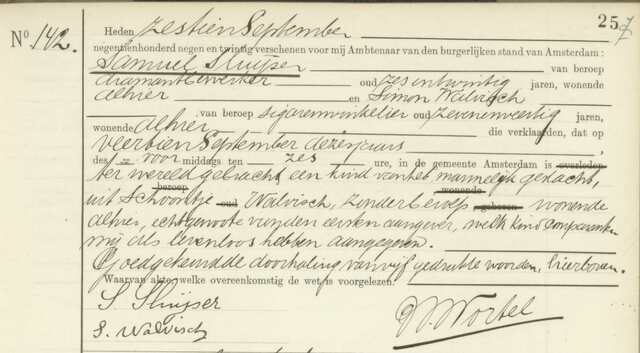 257
Nº 142.
Heden zestien September
negentienhonderd negen en twintig verschenen voor mij Ambtenaar van den burgerlijken stand van Amsterdam:
Samuel Sluijser van beroep
diamantbewerker oud zes en twintig jaren, wonende
alhier en Simon Walvisch
, van beroep sigarenwinkelier oud zevenenveertig jaren,
wonende alhier die verklaarden, dat op
veertien September dezer jaars
des voor middags ten zes ure, in de gemeente Amsterdam is overleden
ter wereld gebracht een kind van het mannelijk geslacht,
beroep wonende
uit Schoontje oud Walvisch, zonder beroep geboren wonende
alhier, echtgenoote van den eersten aangever, welk kind comparanten
mij als levenloos hebben aangegeven.
Goedgekeurd de doorhaling van vijf gedrukte woorden, hierboven.
Waarvan akte, welke overeenkomstig de wet is voorgelezen.
S. Sluijser
S. Walvisch
Wortel